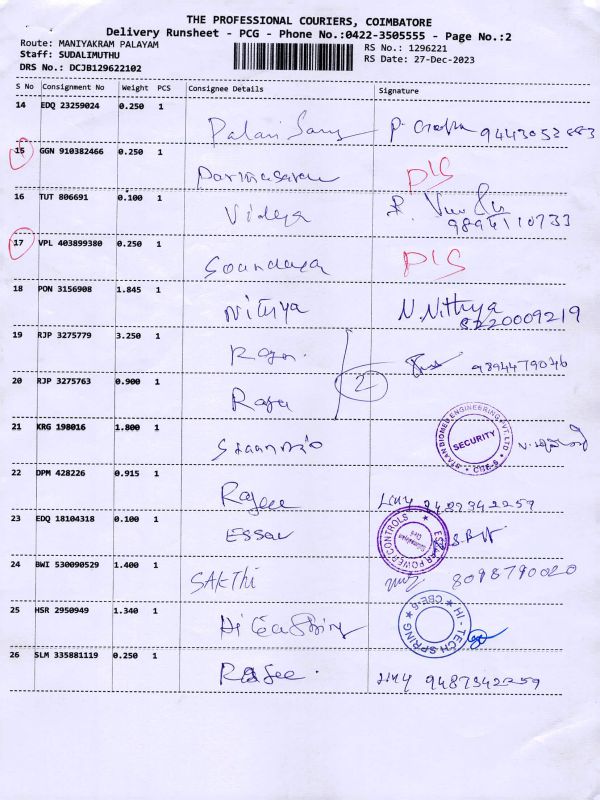 THE PROFESSIONAL COURIERS, COIMBATORE
Delivery Runsheet - PCG - Phone No.:0422-3505555 - Page No.:2
Route: MANIYAKRAM PALAYAM
Staff: SUDALIMUTHU
DRS No.: DCJB129622102
RS No.: 1296221
RS Date: 27-Dec-2023
S No Consignment No Weight PCS Consignee Details Signature
14 EDQ 23259024 0.250 1
Palani Samy
15 GGN 910382466 0.250 1
D/S
16 TUT 806691 0.100 1
Vidya
9894110733
17 VPL 403899380 0.250 1
Soundarya D/S
18 PON 3156908 1.845 1
Nithya N. Nithya
8220009219
19 RJP 3275779 3.250 1
2
20 RJP 3275763 0.900 1
21 KRG 198016 1.800 1
STAAN BIOMED ENGINEERING PVT. LTD
SECURITY
CBE-6
22 DPM 428226 0.915 1
Rajee
23 EDQ 18104318 0.100 1
Essar
24 BWI 530090529 1.400 1
SAKTHI 8098790020
25 HSR 2950949 1.340 1
HI-TECH SPRING
CBE-6
26 SLM 335881119 0.250 1
Rajee 9487342259